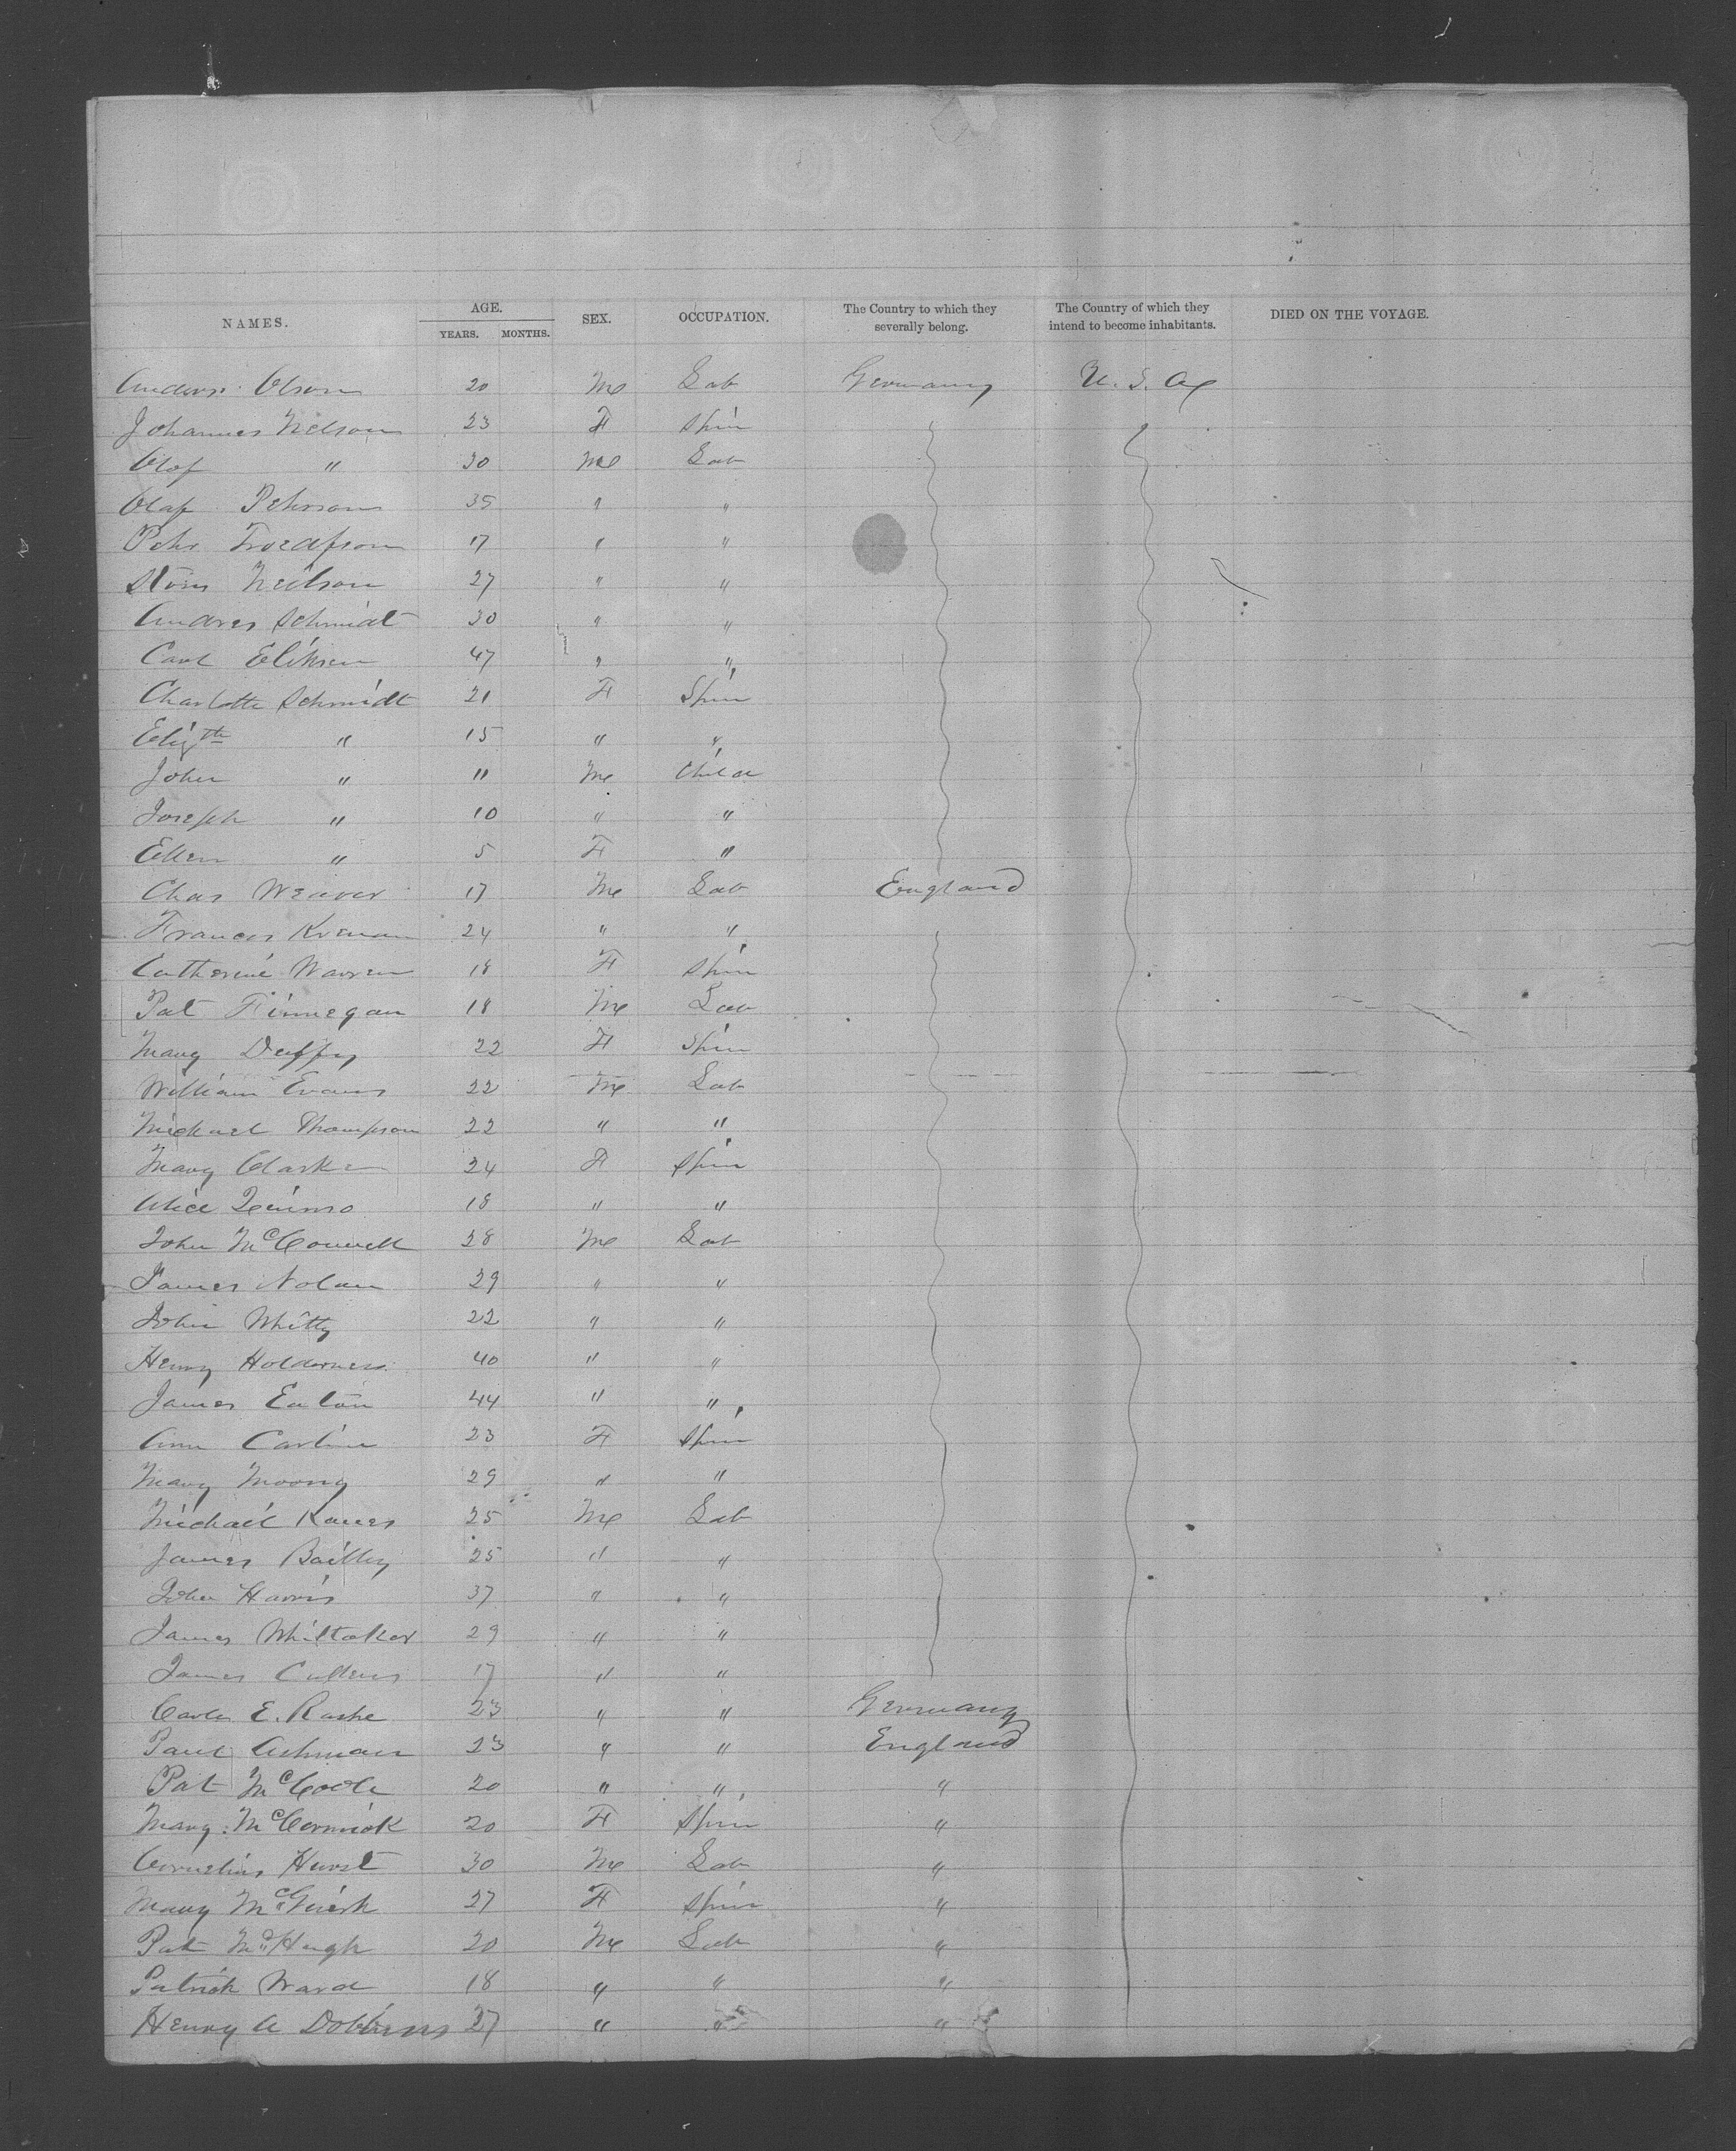 NAMES. AGE. YEARS. MONTHS. SEX. OCCUPATION. The Country to which they severally belong. The Country of which they intend to become inhabitants. DIED ON THE VOYAGE.
Anders Olson 20 Me Lab Germany U. S. A
Johannes Nelson 23 F Spin
Olof " 30 Me Lab
Olaf Pehrson 35 " "
Pehr 17 " "
Neilson 27 " "
Andres Schmidt 30 " "
Carl 47 " "
Charlotte Schmidt 21 F Spin
Elizth " 15 " "
John " 11 Me Child
Joseph " 10 " "
Ellen " 5 F "
Chas Weaver 17 Me Lab England
Frances 24 " "
Catherine Warren 18 F Spin
Pat Finnegan 18 Me Lab
Mary Duffy 22 F Spin
William Evans 22 Me Lab
Michael Thompson 22 " "
Mary Clarke 24 F Spin
Alice 18 " "
John McConnell 28 Me Lab
James Nolan 29 " "
John Whitty 22 " "
Henry Holderness 40 " "
James Eaton 44 " "
Ann Carlin 23 F Spin
Mary Moony 29 " "
Michael Kanes 25 Me Lab
James Bailley 25 " "
John Harris 37 " "
James Whittaker 29 " "
James Cullens 17 " "
E. Rashe 23 " " Germany
Paul Ashman 23 " " England
Pat McCoole 20 " " "
Mary McCormick 20 F Spin "
Cornelius Hurst 30 Me Lab "
Mary McGuirk 27 F Spin "
Pat McHugh 20 Me Lab "
Patrick Ward 18 " " "
Henry A Dobbins 27 " " "